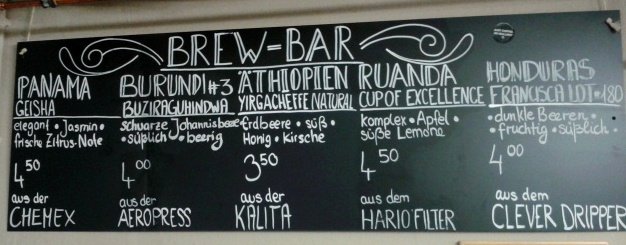 BREW-BAR
PANAMA
GEISHA
elegant • Jasmin •
frische Zitrus-Note
4 50
aus der
CHEMEX
BURUNDI #3
BUZIRAGUHINDWA
schwarze Johannisbeere
• süßlich • beerig
4 00
aus der
AEROPRESS
ÄTHIOPIEN
YIRGACHEFFE NATURAL
Erdbeere • süß •
Honig • Kirsche
3 50
aus der
KALITA
RUANDA
CUP OF EXCELLENCE
komplex • Apfel •
süße Lemone
4 50
aus dem
HARIO FILTER
HONDURAS
FRANCISCA LOT • 180
• dunkle Beeren •
• fruchtig • süßlich •
4 00
aus dem
CLEVER DRIPPER